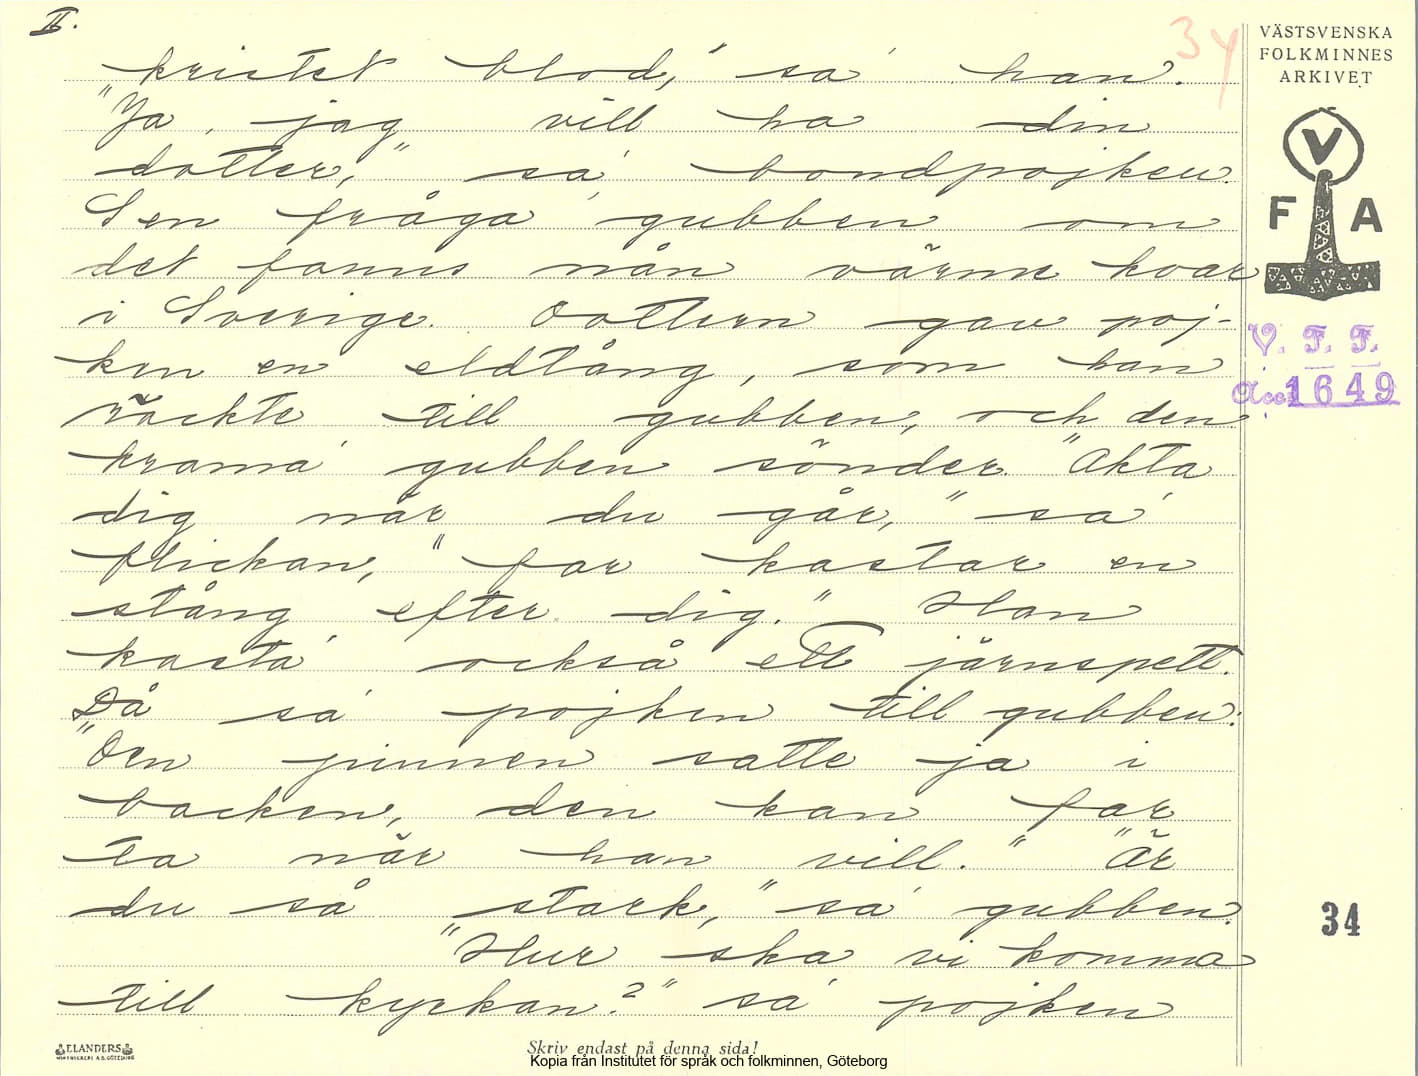 II.
34
VÄSTSVENSKA
FOLKMINNES
ARKIVET
kristet blod," sa' han.
"Ja, jag vill ha din
dotter," sa' bondpojken.
Sen fråga' gubben om
det fanns nån värme kvar
i Sverige. Dottern gav poj-
ken en eldtång, som han
räckte till gubben, och den
krama' gubben sönder. "Akta
dig när du går," sa'
flickan, "far kastar en
stång efter dig." Han
kasta' också ett järnspett.
Då sa' pojken till gubben:
"Den pinnen satte ja i
backen, den kan far
ta när han vill." "Är
du så stark," sa' gubben.
"Hur ska vi komma
till kyrkan?" sa' pojken
V
F A
V. F. F.
Acc. 1649
34
ELANDERS
BOKTRYCKERI A.B. GÖTEBORG
Skriv endast på denna sida!
Kopia från Institutet för språk och folkminnen, Göteborg